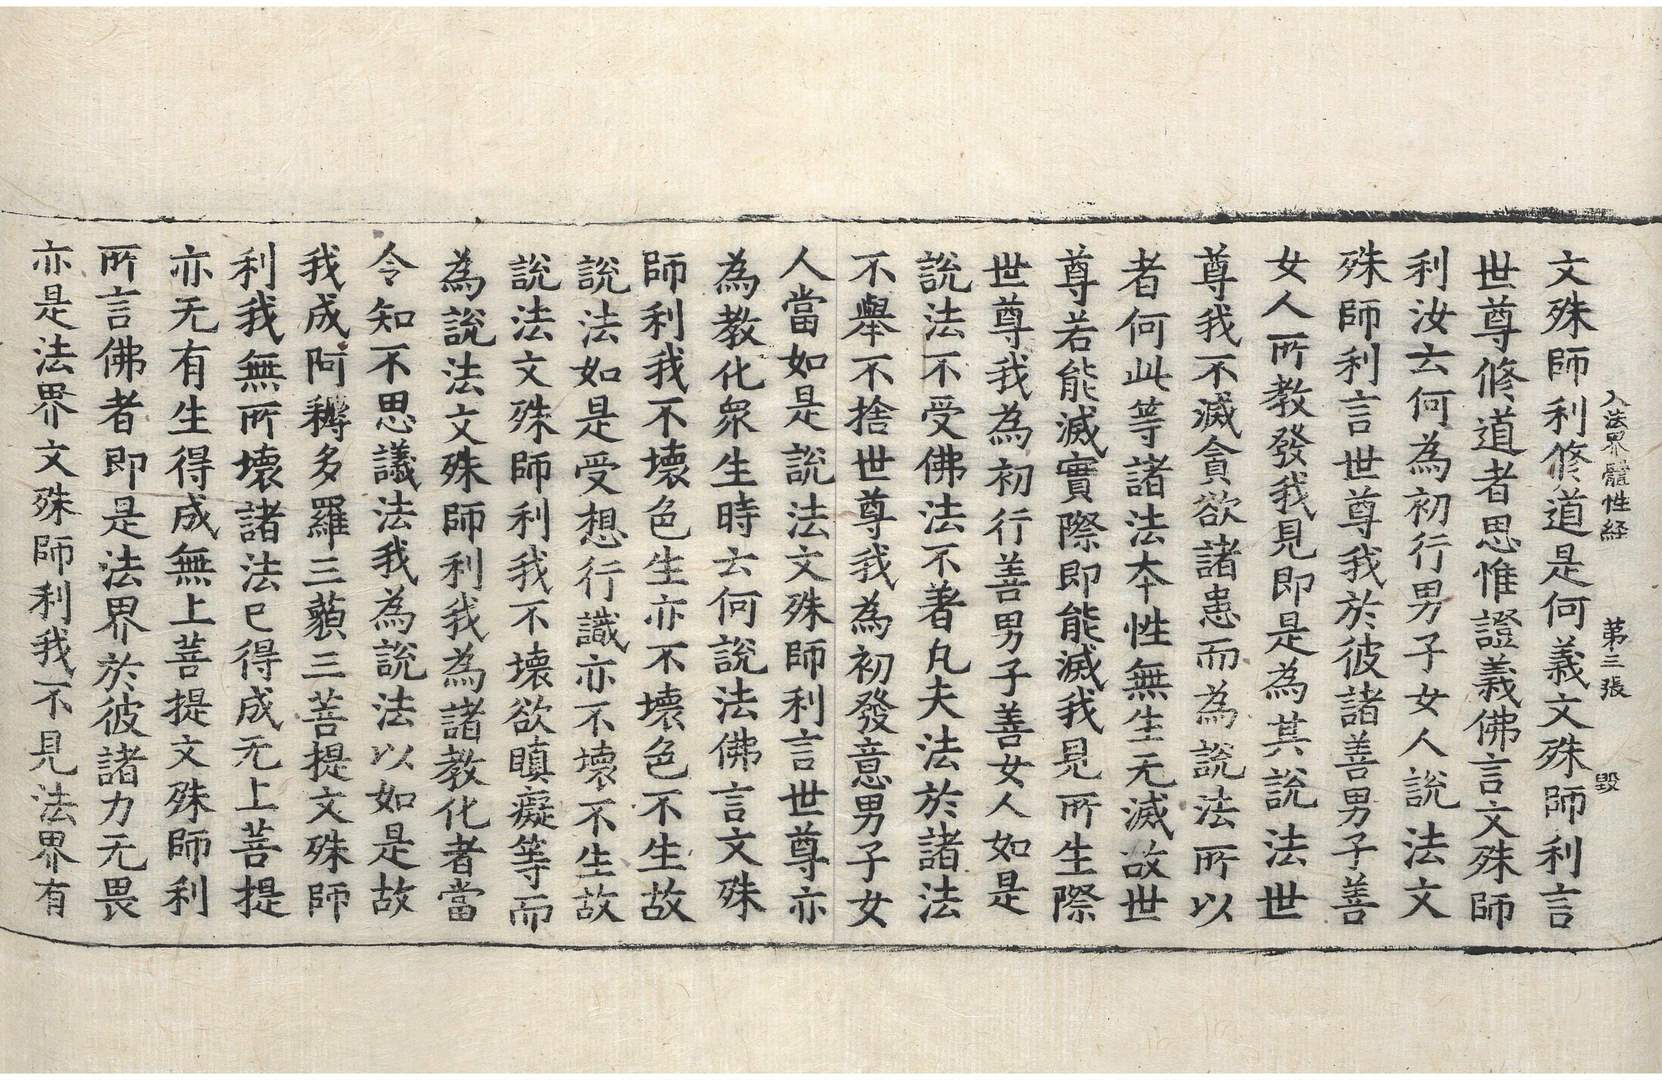 入法界體性経 第三張 毀
文殊師利修道是何義文殊師利言
世尊修道者思惟證義佛言文殊師
利汝云何為初行男子女人說法文
殊師利言世尊我於彼諸善男子善
女人所教發我見即是為其說法世
尊我不滅貪欲諸患而為說法所以
者何此等諸法本性無生无滅故世
尊若能滅實際即能滅我見所生際
世尊我為初行善男子善女人如是
說法不受佛法不著凡夫法於諸法
不舉不捨世尊我為初發意男子女
人當如是說法文殊師利言世尊亦
為教化眾生時云何說法佛言文殊
師利我不壞色生亦不壞色不生故
說法如是受想行識亦不壞不生故
說法文殊師利我不壞欲瞋癡等而
為說法文殊師利我為諸教化者當
令知不思議法我為說法以如是故
我成阿耨多羅三藐三菩提文殊師
利我無所壞諸法已得成无上菩提
亦无有生得成無上菩提文殊師利
所言佛者即是法界於彼諸力无畏
亦是法界文殊師利我不見法界有